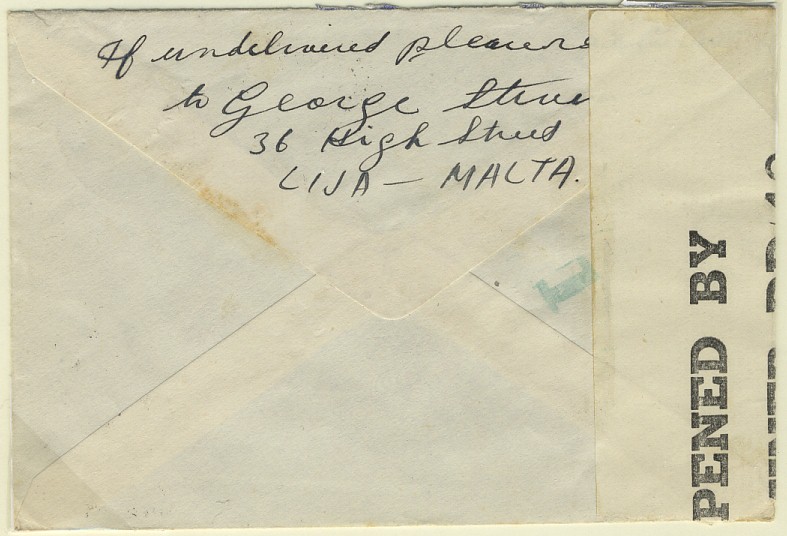 If undelivered please
to George
36 High Street
LIJA — MALTA.
PENED BY